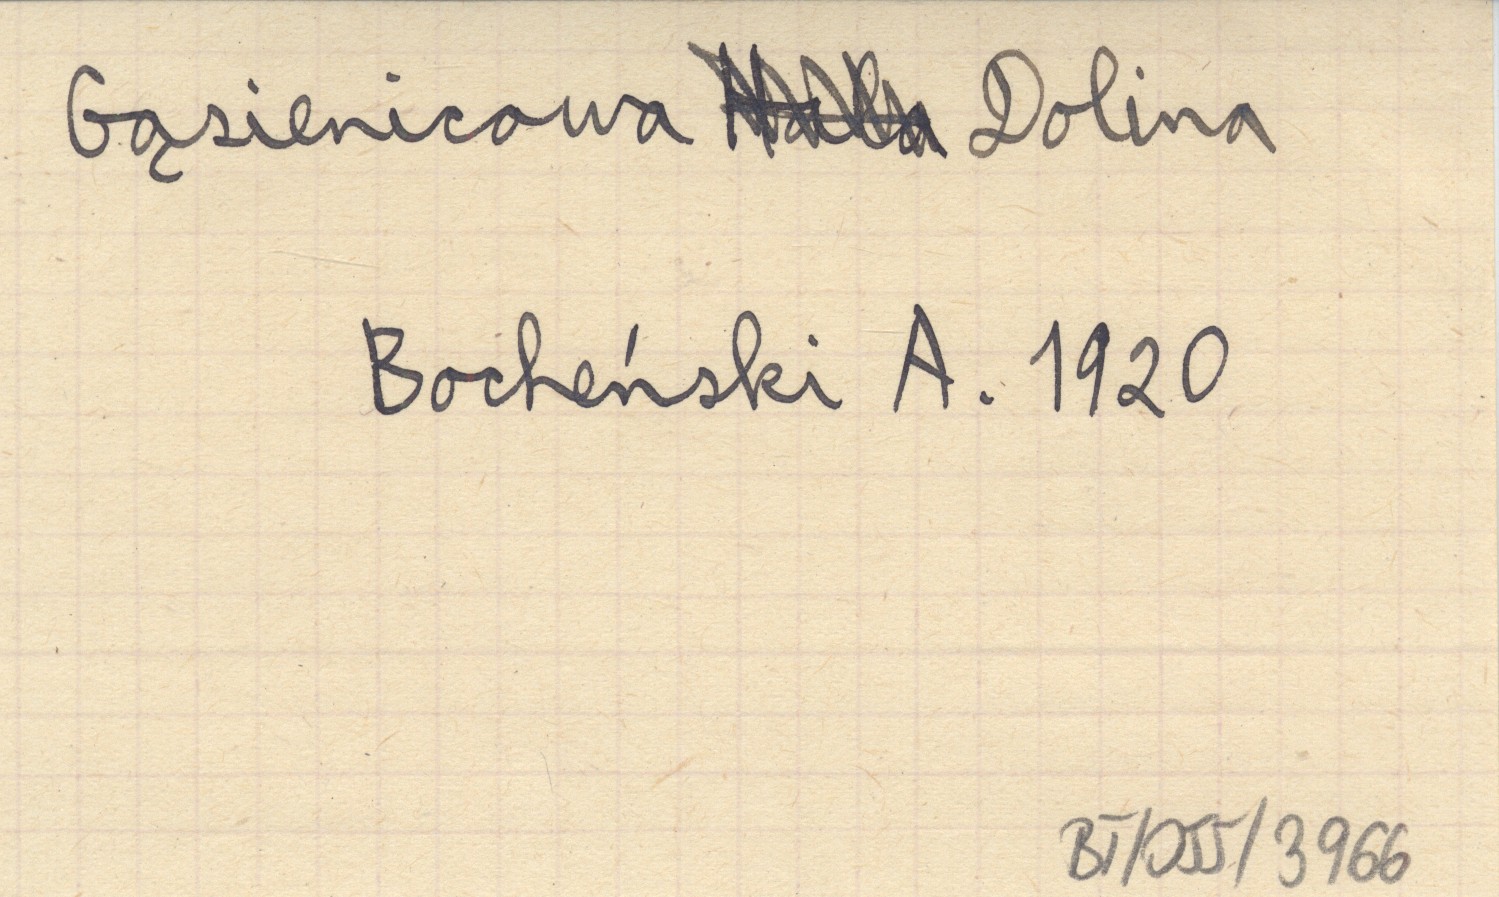 Gąsienicowa Dolina
Bocheński A. 1920
BT/OJJ/3966